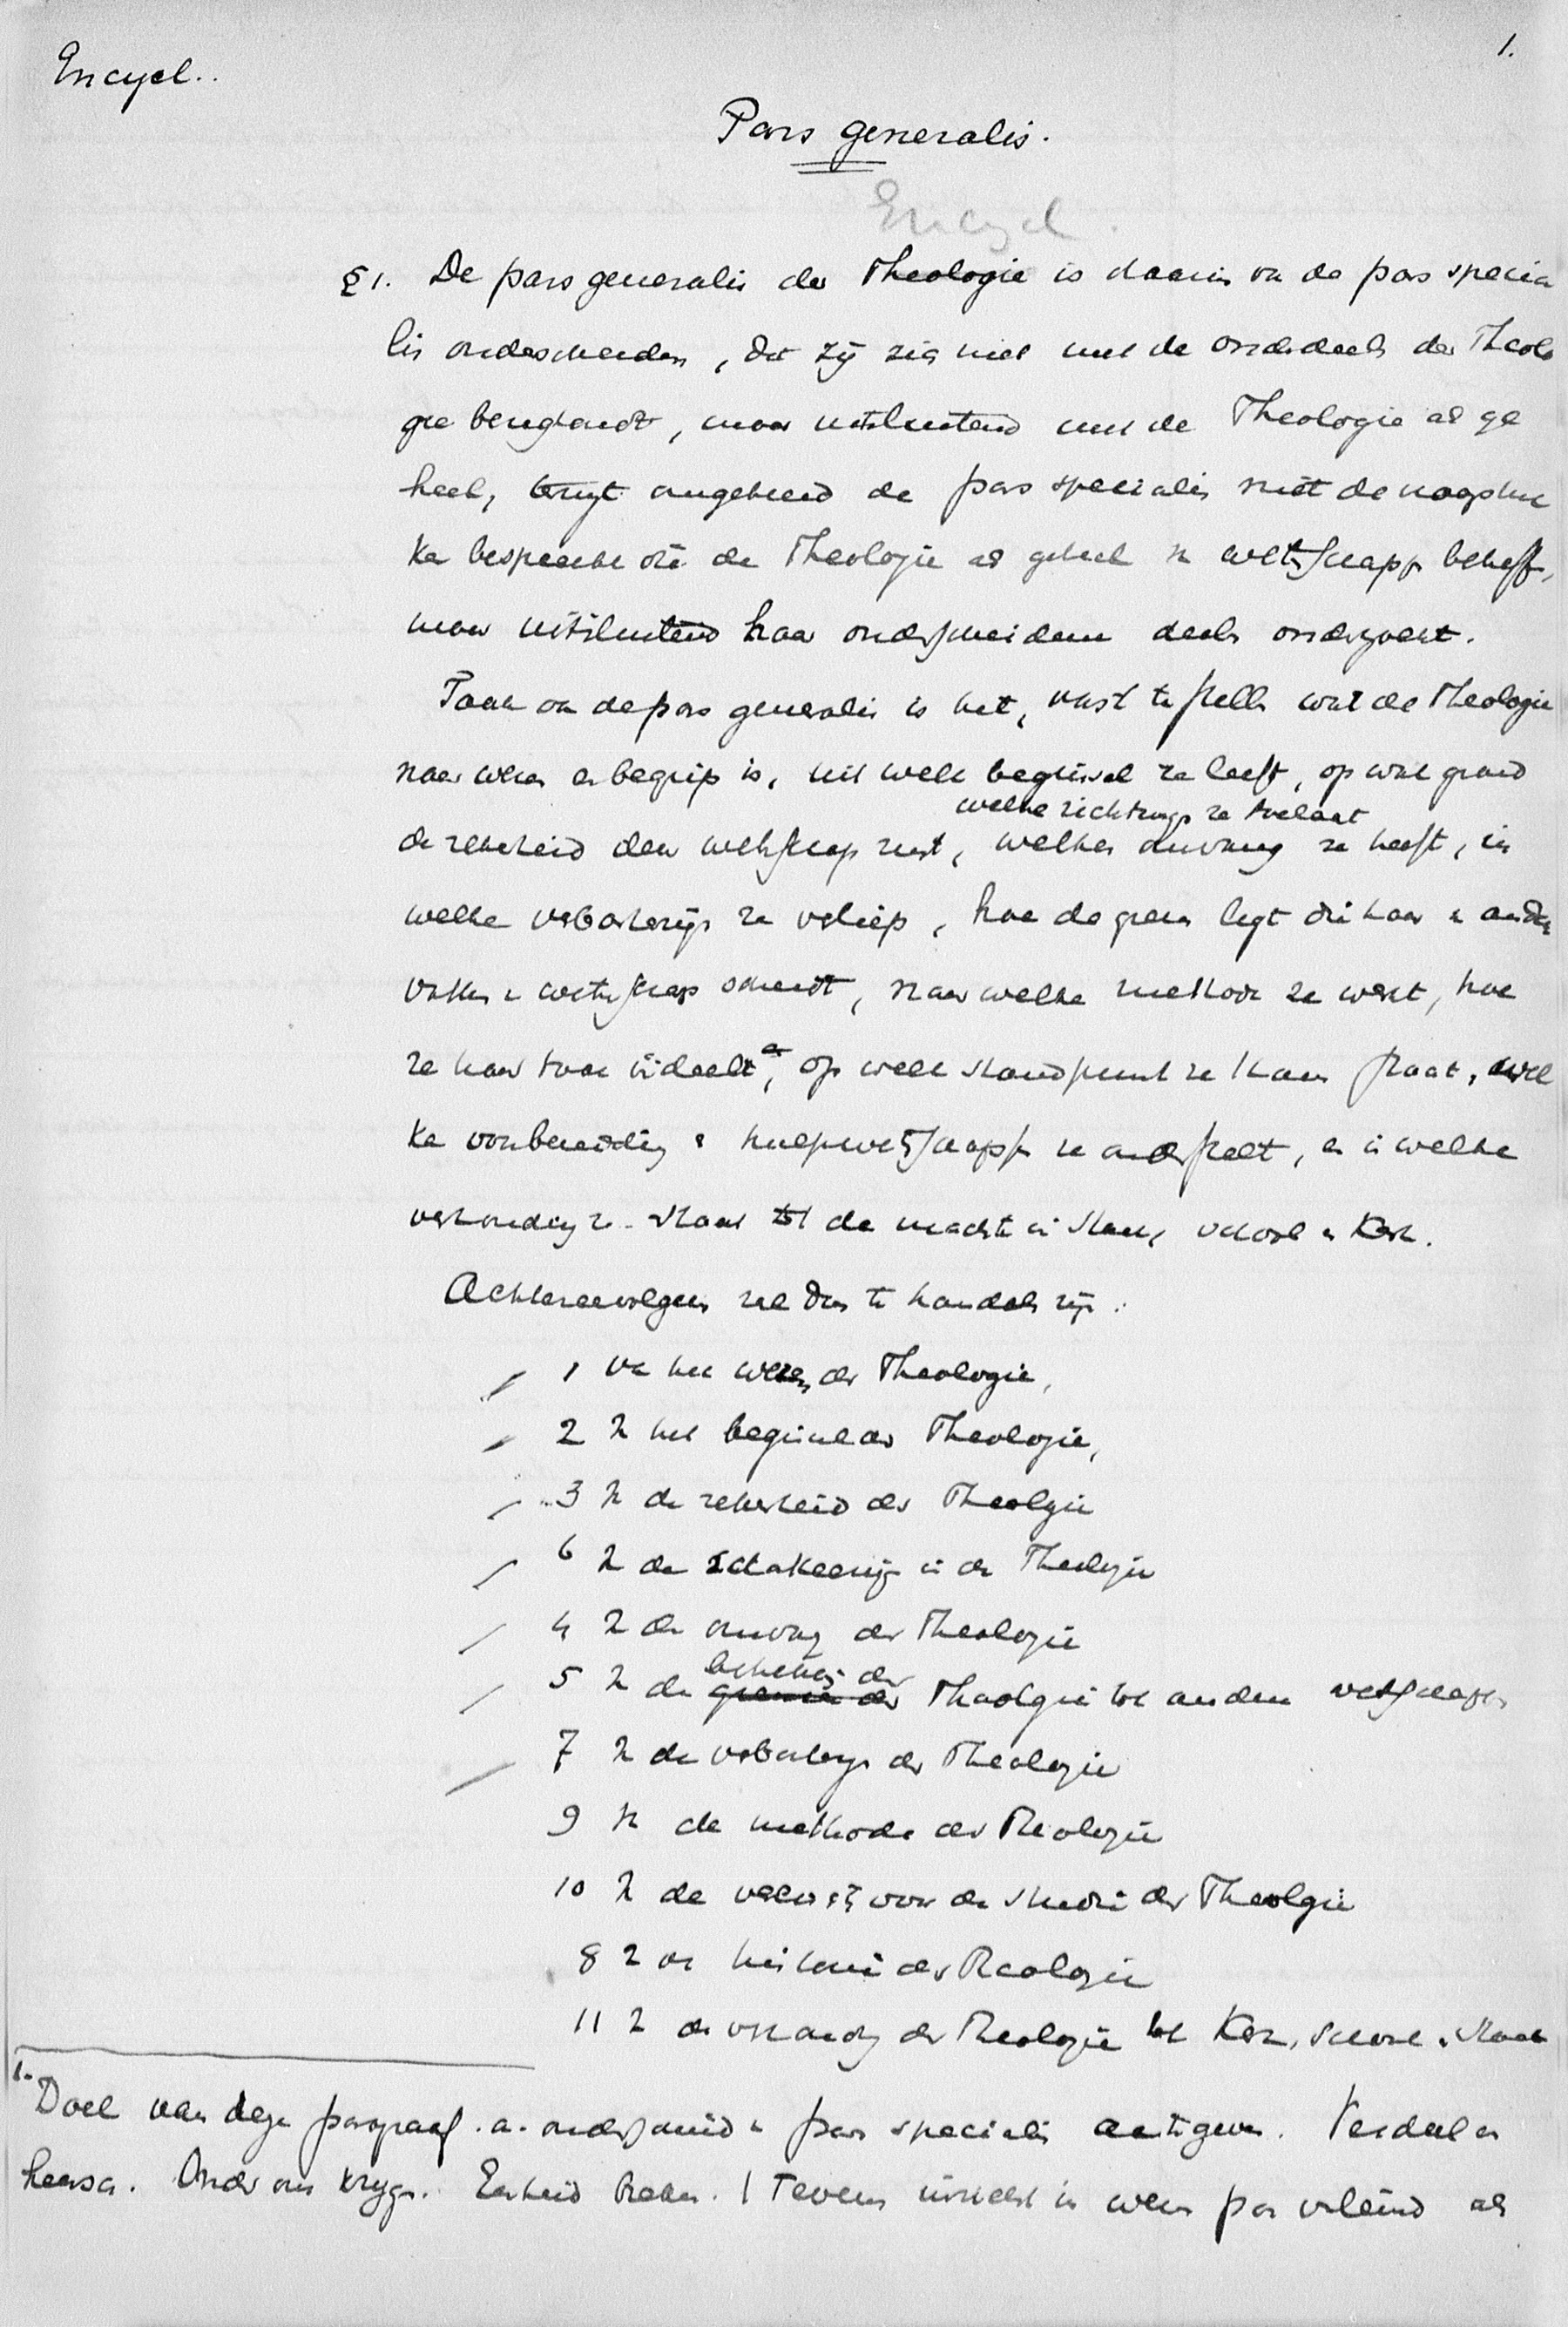 Encycl..
1.
Pars generalis.
Encycl.
§ 1. De pars generalis der Theologie is daarin van de pars specia
lis onderscheiden, dat zij zig niet met de onderdeelen der Theolo
gie bezighoudt, maar uitsluitend met de Theologie als ge
heel, terwijl omgekeerd de pars specialis niet de vraagstuk
ken die de Theologie als geheel
maar uitsluitend haar onderscheidene deelen onderzoekt.
Taak van de pars generalis is het, vast te stellen wat de Theologie
naar wezen en begrip is, uit welk beginsel ze leeft, op wat grond
welke richtingen ze toelaat
de zekerheid dezer wetenschap rust, welken omvang ze heeft, in
welke ze verliep, hoe de grens ligt die haar van andere
vakken van wetenschap scheidt, naar welke methode ze werkt, hoe
ze haar taak indeelt, op welk standpunt ze thans staat, wel
ke voorbereiding en hulpwetenschappen ze onderstelt, en in welke
verhouding ze staat tot de macht in Staat, school en Kerk.
Achtereenvolgens zal dus te handelen zijn:
1 van het wezen der Theologie,
2 " het beginsel der Theologie,
3 " de zekerheid der Theologie
6 " de schakeering in de Theologie
4 " den omvang der Theologie
5 " de grenzen der Theologie tot andere wetenschappen
7 " de der Theologie
9 " de methode der Theologie
10 " de voor de studie der Theologie
8 " de historie der Theologie
11 " de verhouding der Theologie tot Kerk, school en Staat
1. Doel van deze paragraaf. a. onderscheid van pars specialis aan te geven. Verdeel en
heersch. Onder ons krijgen. Eenheid. Tevens in wezen pars